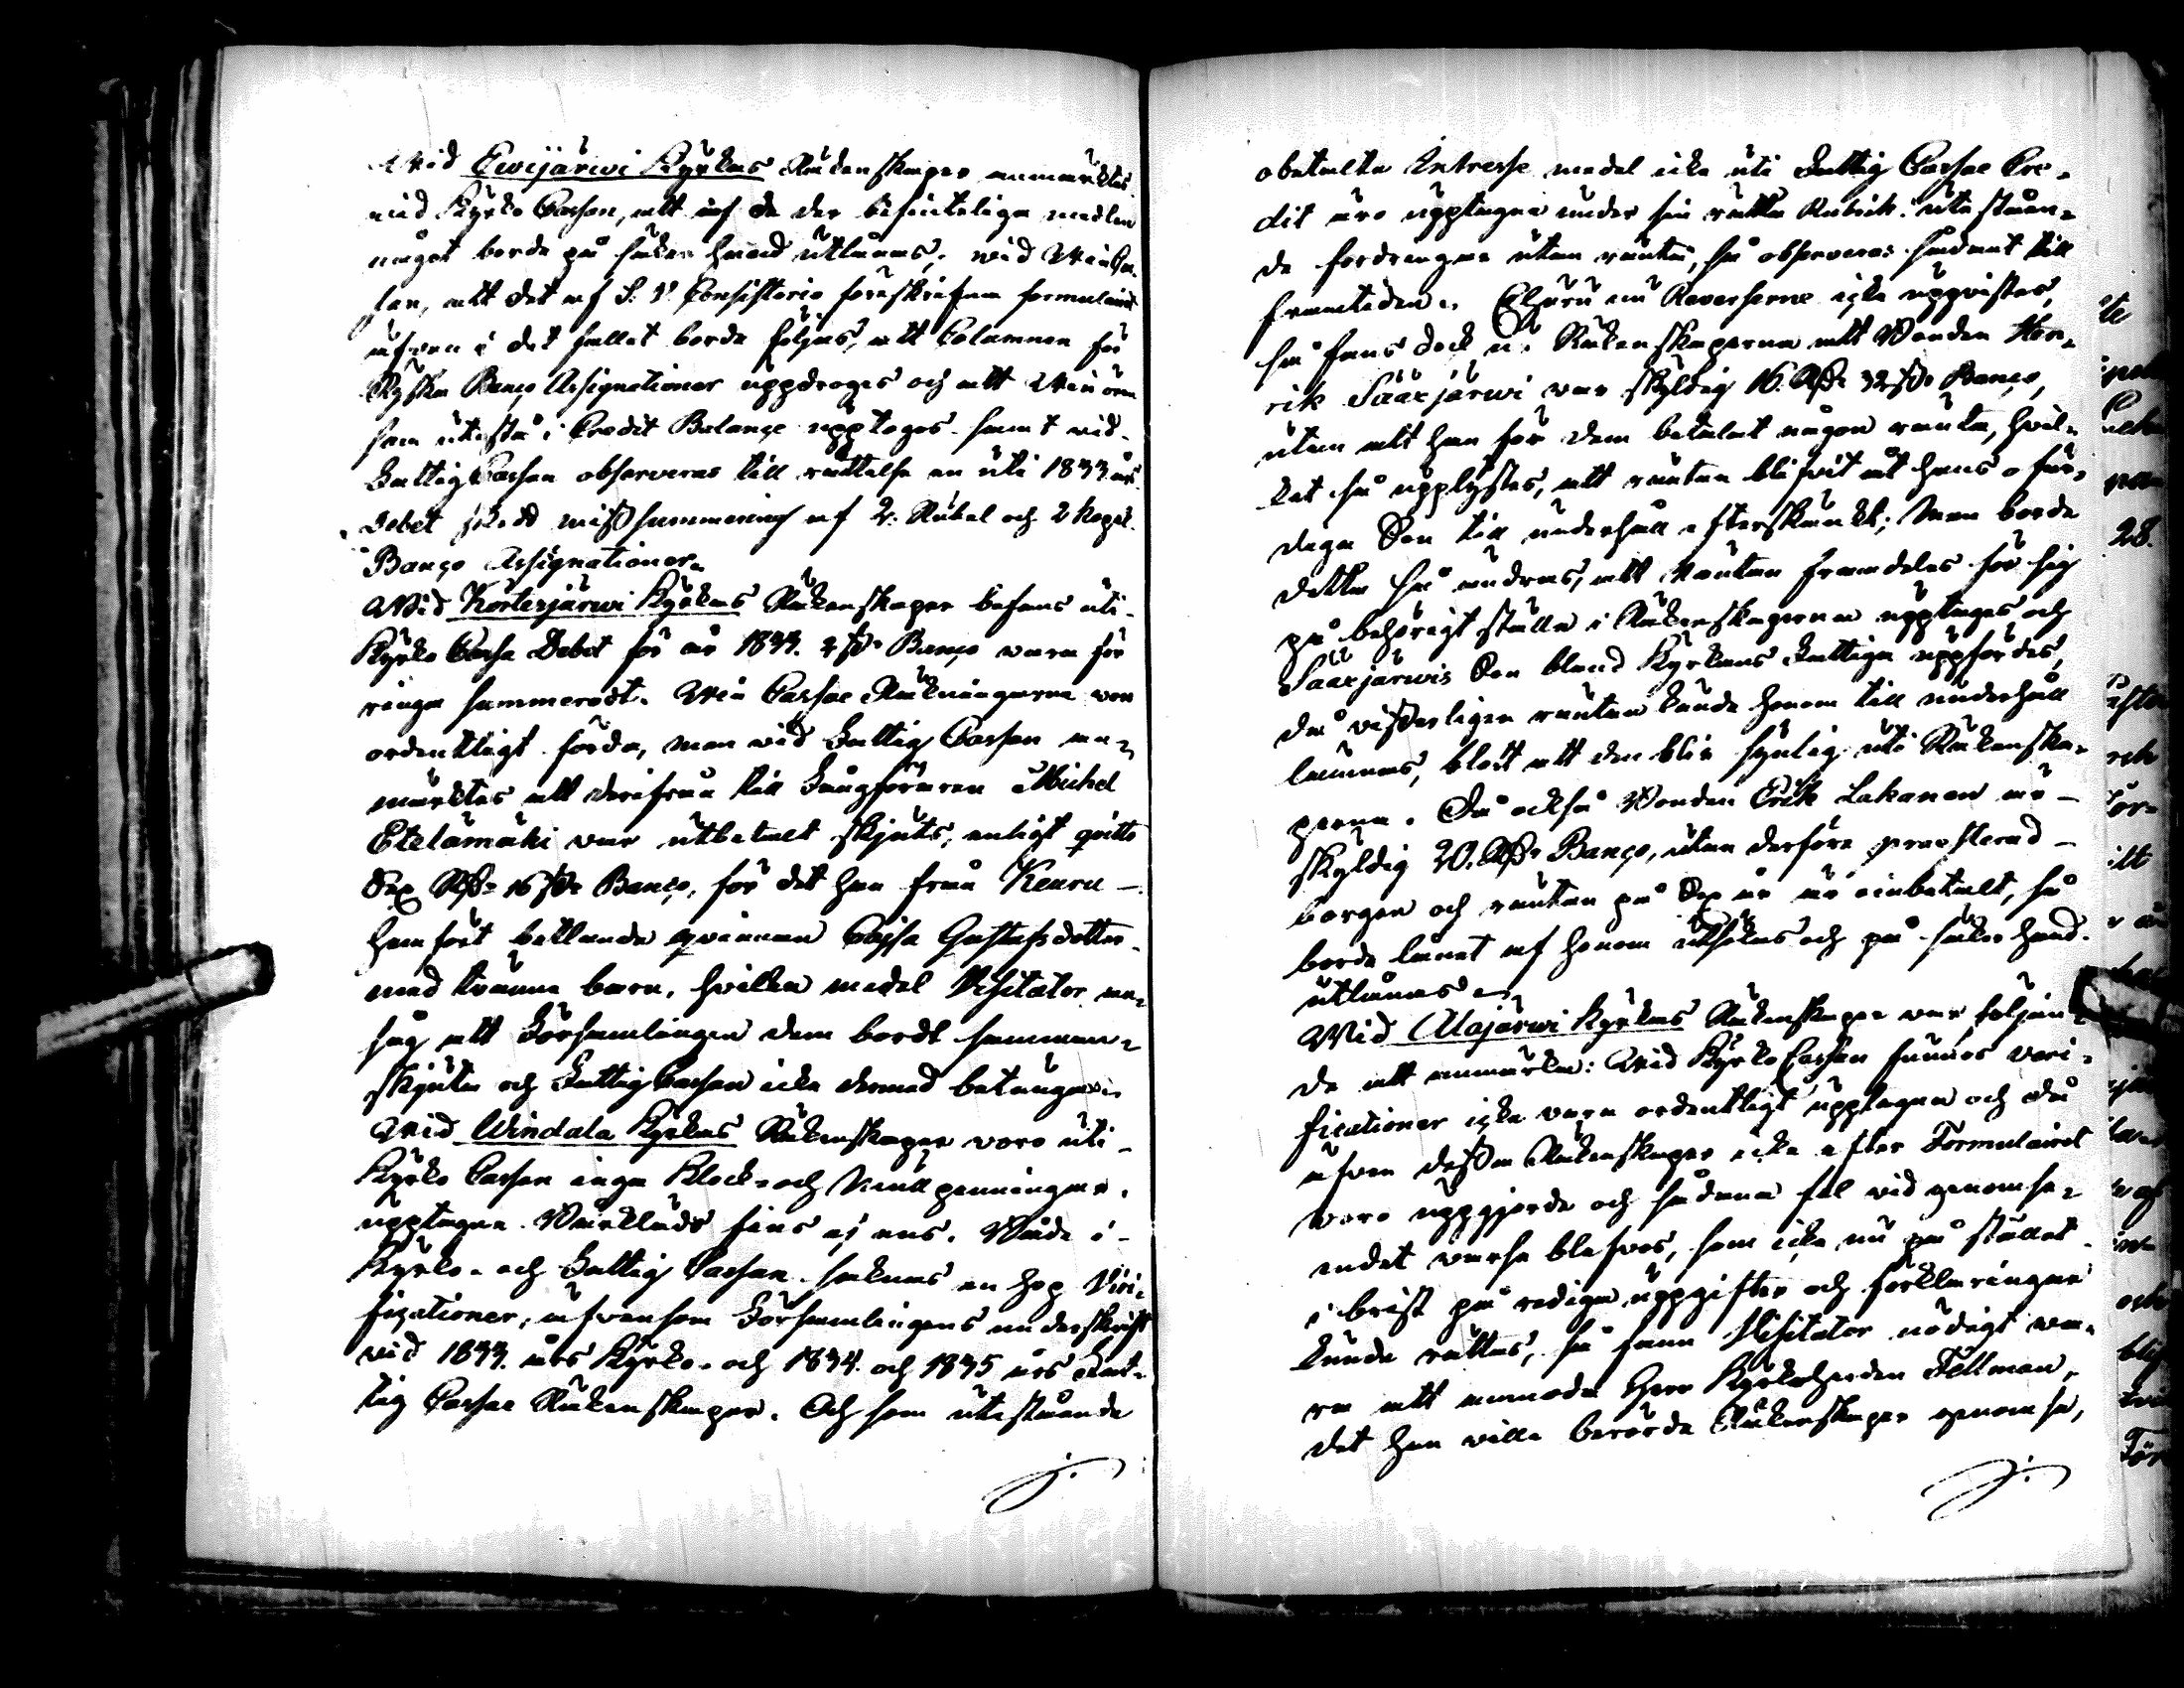 Wid Ewijärwi Kyrkas Räkenskaper anmärktes
vid Kyrko Cassan, att af de der befinteliga medlen
något borde på säker hand utlånas; vid Win Cas-
san, att det af S: V: Consistorio föreskrifna formulairet
äfven i det fallet borde följas, att Colamnen för
Ryska Banco Assignationer uppdroges och att Win ören
som utestå i Credit Balance upptoges samt vid
Fattig Cassan observeras till rättelse en uti 1833 års
Debet skedd missummering af 2: Rubel och 2 Kopek
Banco Assignationer.
Wid Kortesjärwi Kyrkas Räkenskaper befans uti
Kyrko Cassæ Debet för år 1833. 4 sk. Banco vara för
ringa summeradt. Win Cassæ Räkningarne voro
ordentligt förda, men vid Fattig Cassan an-
märktes att derifrån till Fångföraren Michel
Etelämäki var utbetalt skjuts, enligt qvitto
Sex Rd. 16 sk. Banco, för det han från Keuru
hemfört bettlande qvinnan Cajsa Gustafsdotter
med tvänne barn, hvilka medel Visitator an-
såg att Församlingen dem bordt samman-
skjuta och Fattig Cassan icke dermed betungas.
Wid Windala Kyrkas Räkenskaper voro uti
Kyrko Cassan inga Klock- och Means penningar
upptagne. Bårkläde fins ej ens. Både i
Kyrko- och Fattig Cassan saknas en hop Veri-
ficationer, äfvensom Församlingens underskrift
vid 1833. års Kyrko- och 1834. och 1835 års Fat-
tig Cassæ Räkenskaper. Och som utestående
obetalte Intresse medel icke uti Fattig Cassæ Cre-
dit äro upptagne under sin rätta Rubrik: uteståen-
de fordringar utan ränta, så observeras sådant till
framtiden. Ehuru nu Reverserne icke uppvistes,
så fans dock i Räkenskaperna att Bonden Hen-
rik Säärjärwi var skyldig 16. Rd. 32 sk. Banco,
utan att han för dem betalat någon ränta, hvil-
ket så upplystes, att räntan blifvit åt hans ofär-
diga Son till underhåll efterskänkt; Men borde
detta så ändras, att Räntan framdeles för sig
på behörigt ställe i Räkenskaperna upptages och
Säärjärwis Son bland Kyrkans Fattiga uppfördes,
då visserligen räntan kunde honom till underhåll
lemnas, blott att den blir synlig uti Räkenska-
perna. Då också Bonden Erik Lakanen är
skyldig 20. Rd. Banco, utan derföre præsterad
borgen och räntan på Sex år är oinbetalt, så
borde lånet af honom utsökas och på säker hand
utlånas.
Wid Alajärwi Kyrkas Räkenskaper var följan-
de att anmärka: Wid Kyrko Cassan funnos veri-
ficationer icke vara ordentligt upptagna och då
äfven dessa Räkenskaper icke efter Formulairet
voro uppgjorde och sådana fel vid genomse-
endet varse blefvos, som icke nu på stället
i brist på redige uppgifter och förklaringar
kunde rättas, så fann Visitator nödigt va-
ra att anmoda Herr Kyrkoherden Fellman,
det han ville berörde Räkenskaper genomse,